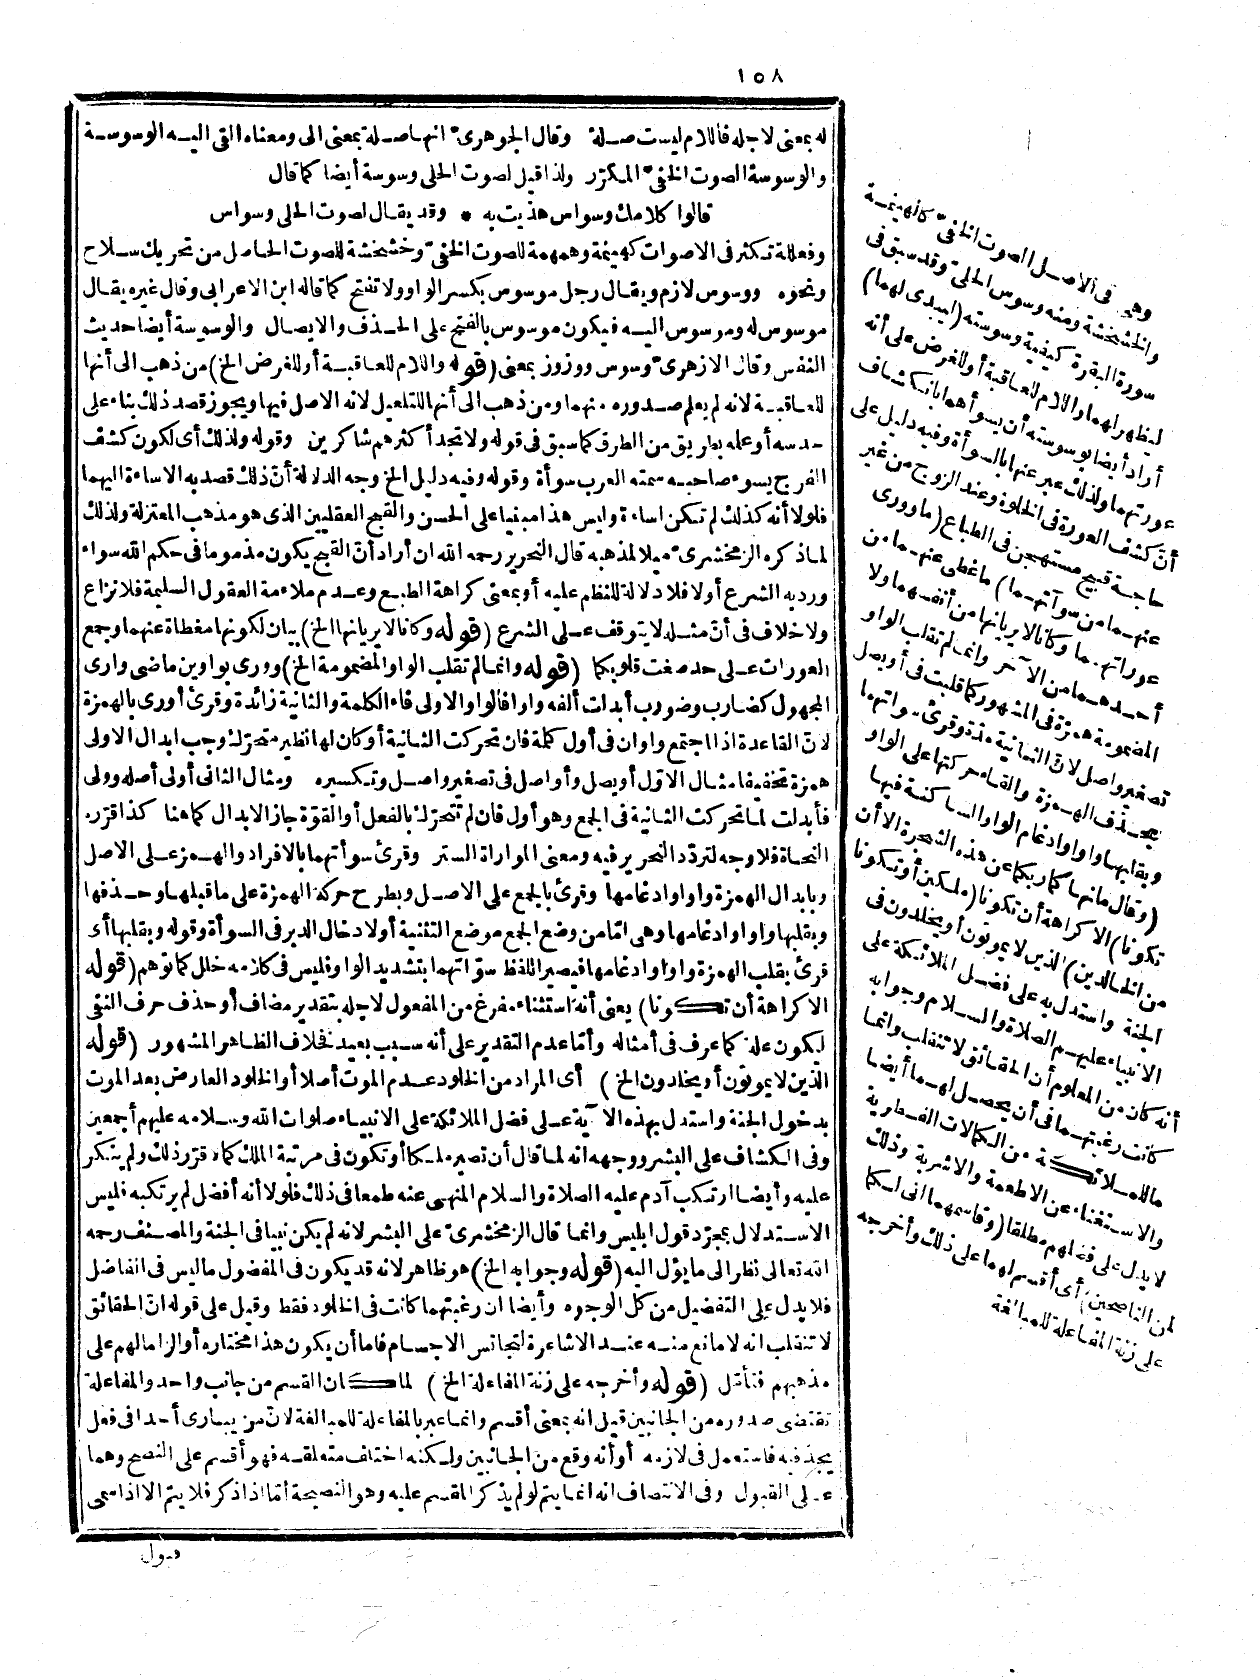 ١٥٨
له بمعنى لاجله فاللام ليست صلة وقال الجوهرى انها صلة بمعنى الى ومعناه القى اليه الوسوسة
والوسوسة الصوت الخفى المكرّر ولذا قيل لصوت الحلى وسوسة أيضا كما قال
قالوا كلامك وسواس هذيت به * وقد يقال لصوت الحلى وسواس
وفعللة تكثر فى الاصوات كهينمة وهمهمة للصوت الخفى وخشخشة للصوت الحاصل من تحريك سلاح
ونحوه ووسوس لازم ويقال رجل موسوس بكسر الواو ولا تفتح كما قاله ابن الاعرابى وقال غيره يقال
موسوس له وموسوس اليه فيكون موسوس بالفتح على الحذف والايصال والوسوسة أيضا حديث
النفس وقال الازهرى وسوس ووزوز بمعنى (قوله واللام للعاقبة أو للغرض الخ) من ذهب الى أنها
للعاقبة لانه لم يعلم صدوره منهما ومن ذهب الى أنها للتعليل لانه الاصل فيها ويجوز قصد ذلك بناء على
حدسه أو علمه بطريق من الطرق كما سبق فى قوله ولا تجد أكثرهم شاكرين وقوله ولذلك أى لكون كشف
الفرج يسوء صاحبه سمته العرب سوأة وقوله وفيه دليل الخ وجه الدلالة أنّ ذلك قصد به الاساءة اليهما
فلولا أنه كذلك لم تكن اساءة وليس هذا مبنيا على الحسن والقبح العقليين الذى هو مذهب المعتزلة ولذلك
لما ذكره الزمخشرى ميلا لمذهبه قال النحرير رحمه الله ان أراد أنّ القبح يكون مذموما فى حكم الله سواء
ورد به الشرع أولا فلا دلالة للنظم عليه أو بمعنى كراهة الطبع وعدم ملاءمة العقول السليمة فلا نزاع
ولا خلاف فى أنّ مثله لا يتوقف على الشرع (قوله وكانا لا يريانها الخ) بيان لكونها مغطاة عنهما وجمع
العورات على حد صغت قلوبكما (قوله وانما لم تقلب الواو المضمومة الخ) وورى بواوين ماضى وارى
المجهول كضارب وضورب أبدلت ألفه واوا فالواو الاولى فاء الكلمة والثانية زائدة وقرئ أورى بالهمزة
لانّ القاعدة اذا اجتمع واوان فى أول كلمة فان تحركت الثانية أو كان لها نظير متحرّك وجب ابدال الاولى
همزة تخفيفا مثال الاوّل أويصل وأواصل فى تصغير واصل وتكسيره ومثال الثانى أولى أصله وولى
فأبدلت لما تحركت الثانية فى الجمع وهو أول فان لم تتحرّك بالفعل أو القوّة جاز الابدال كما هنا كذا قرّره
النحاة فلا وجه لتردّد النحرير فيه ومعنى المواراة الستر وقرئ سوأتهما بالافراد والهمز على الاصل
وبابدال الهمزة واوا وادغامها وقرئ بالجمع على الاصل وبطرح حركة الهمزة على ما قبلها وحذفها
وبقلبها واوا وادغامها وهى امّا من وضع الجمع موضع التثنية أو لادخال الدبر فى السوأة وقوله وبقلبها أى
قرئ بقلب الهمزة واوا وادغامها فيصير اللفظ سوّاتهما بتشديد الواو فليس فى كلامه خلل كما توهم (قوله
الا كراهة أن تكونا) يعنى أنه استثناء مفرغ من المفعول لاجله بتقدير مضاف أو حذف حرف النفى
ليكون علة كما عرف فى أمثاله وأمّا عدم التقدير على أنه سبب بعيد فخلاف الظاهر المشهور (قوله
الذين لا يموتون أو يخلدون الخ) أى المراد من الخلود عدم الموت أصلا أو الخلود العارض بعد الموت
بدخول الجنة واستدل بهذه الآية على فضل الملائكة على الانبياء صلوات الله وسلامه عليهم أجمعين
وفى الكشاف على البشر ووجهه انه لما قال أن تصير ملكا أو تكون فى مرتبة الملك كما قرّر ذلك ولم ينكر
عليه وأيضا ارتكب آدم عليه الصلاة والسلام المنهى عنه طمعا فى ذلك فلولا أنه أفضل لم يرتكبه فليس
الاستدلال بمجرّد قول ابليس وانما قال الزمخشرى على البشر لانه لم يكن نبيا فى الجنة والمصنف رحمه
الله تعالى نظر الى ما يؤل اليه (قوله وجوابه الخ) هو ظاهر لانه قد يكون فى المفضول ما ليس فى الفاضل
فلا يدل على التفضيل من كل الوجوه وأيضا ان رغبتهما كانت فى الخلود فقط وقيل على قوله انّ الحقائق
لا تنقلب انه لا مانع منه عند الاشاعرة لتجانس الاجسام فاما أن يكون هذا مختاره أو الزاما لهم على
مذهبهم فتأمّل (قوله وأخرجه على زنة المفاعلة الخ) لما كان القسم من جانب واحد والمفاعلة
تقتضى صدوره من الجانبين قيل انه بمعنى أقسم وانما عبر بالمفاعلة للمبالغة لانّ من يبارى أحدا فى فعل
يجدّ فيه فاستعمل فى لازمه أو أنه وقع من الجانبين ولكنه اختلف متعلقه فهو أقسم على النصح وهما
على القبول وفى الانتصاف انه انما يتم لو لم يذكر المقسم عليه وهو النصيحة أمّا اذا ذكر فلا يتم الا اذا سمى
قبول
وهى فى الاصل الصوت الخفى كالهينمة
والخشخشة ومنه وسوس الحلى وقد سبق فى
سورة البقرة كيفية وسوسته (ليبدى لهما)
ليظهر لهما واللام للعاقبة أو للغرض على أنه
أراد أيضا بوسوسته أن يسوأهما بانكشاف
عورتهما ولذلك عبر عنها بالسوأة وفيه دليل على
أنّ كشف العورة فى الخلوة وعند الزوج من غير
حاجة قبيح مستهجن فى الطباع (ما وورى
عنهما من سوآتهما) ما غطى عنهما من
عوراتهما وكانا لا يريانها من أنفسهما ولا
أحدهما من الآخر وانما لم تقلب الواو
المضمومة همزة فى المشهور كما قلبت فى أويصل
تصغير واصل لانّ الثانية مدّة وقرئ سواتهما
بحذف الهمزة والقاء حركتها على الواو
وبقلبها واوا وادغام الواو الساكنة فيها
(وقال ما نهاكما ربكما عن هذه الشجرة الا أن
تكونا) الا كراهة أن تكونا (ملكين أو تكونا
من الخالدين) الذين لا يموتون أو يخلدون فى
الجنة واستدل به على فضل الملائكة على
الانبياء عليهم الصلاة والسلام وجوابه
أنه كان من المعلوم أن الحقائق لا تنقلب وانما
كانت رغبتهما فى أن يحصل لهما أيضا
ما للملائكة من الكمالات الفطرية
والاستغناء عن الاطعمة والاشربة وذلك
لا يدل على فضلهم مطلقا (وقاسمهما انى لكما
لمن الناصحين) أى أقسم لهما على ذلك وأخرجه
على زنة المفاعلة للمبالغة